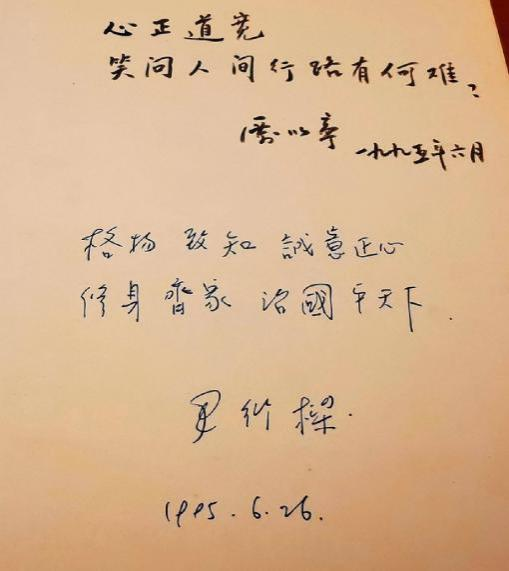 心正道宽
笑问人间行路有何难?
厲以寧 一九九五年六月
格物 致知 誠意 正心
修身 齊家 治國 平天下.
尹衍樑.
1995.6.26.